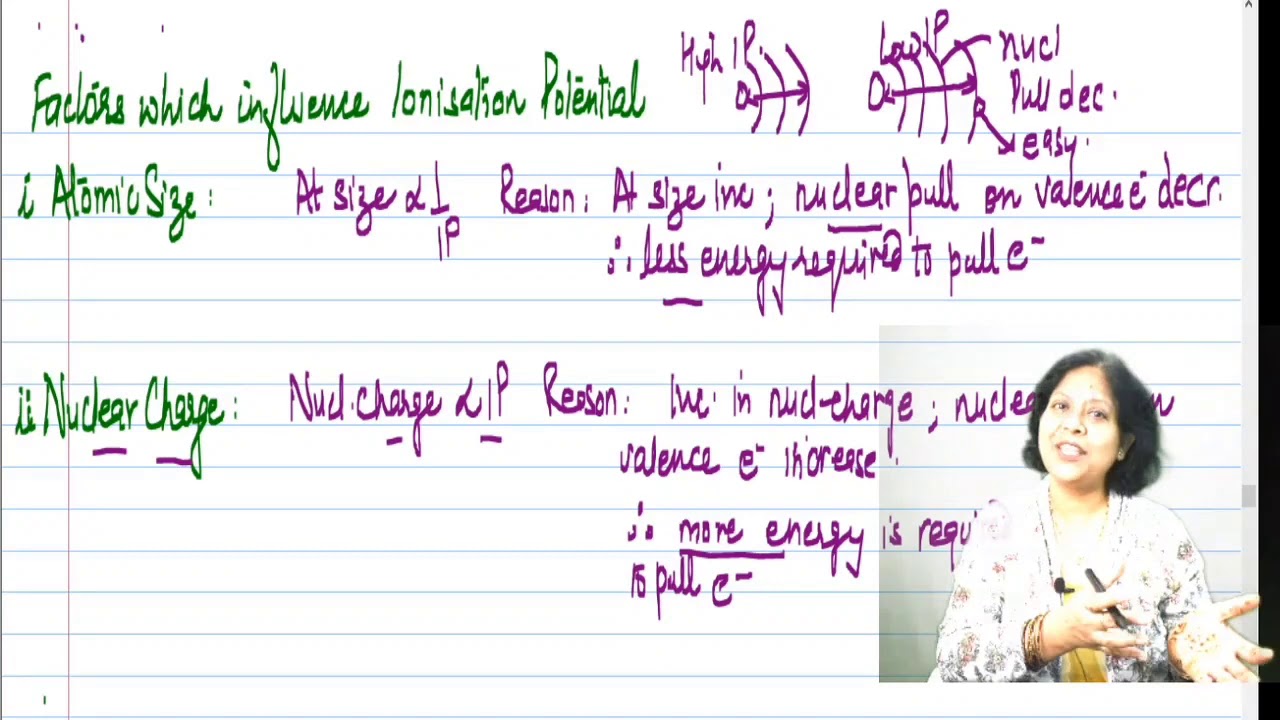 High IP.
Low IP
nucl
Pull dec.
easy.
Factors which influence Ionisation Potential
i Atomic Size :
At size ∝ 1/IP
Reason : At size inc ; nuclear pull on valence e⁻ decr.
∴ less energy required to pull e⁻
ii Nuclear Charge :
Nucl. charge ∝ IP
Reason : Inc. in nucl-charge ;
valence e⁻ increase.
∴ more energy is
to pull e⁻